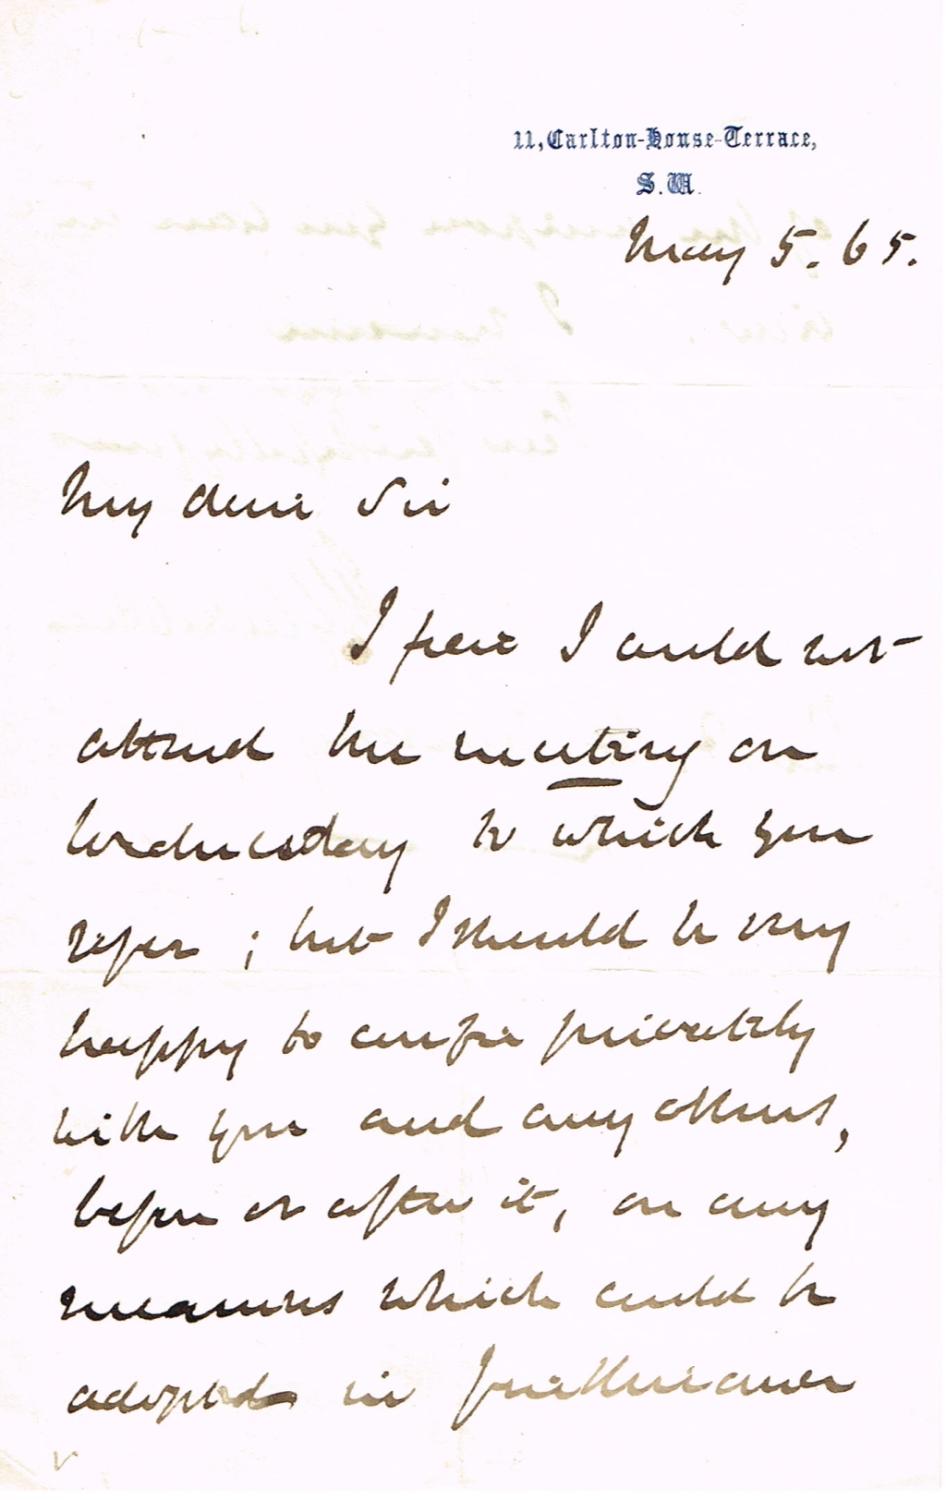 11, Carlton-House-Terrace,
S.W.
May 5. 65.
My dear Sir
I fear I could not
attend the meeting on
Wednesday to which you
refer; but I should be very
happy to confer privately
with you and any others,
before or after it, on any
measures which could be
adopted in furtherance